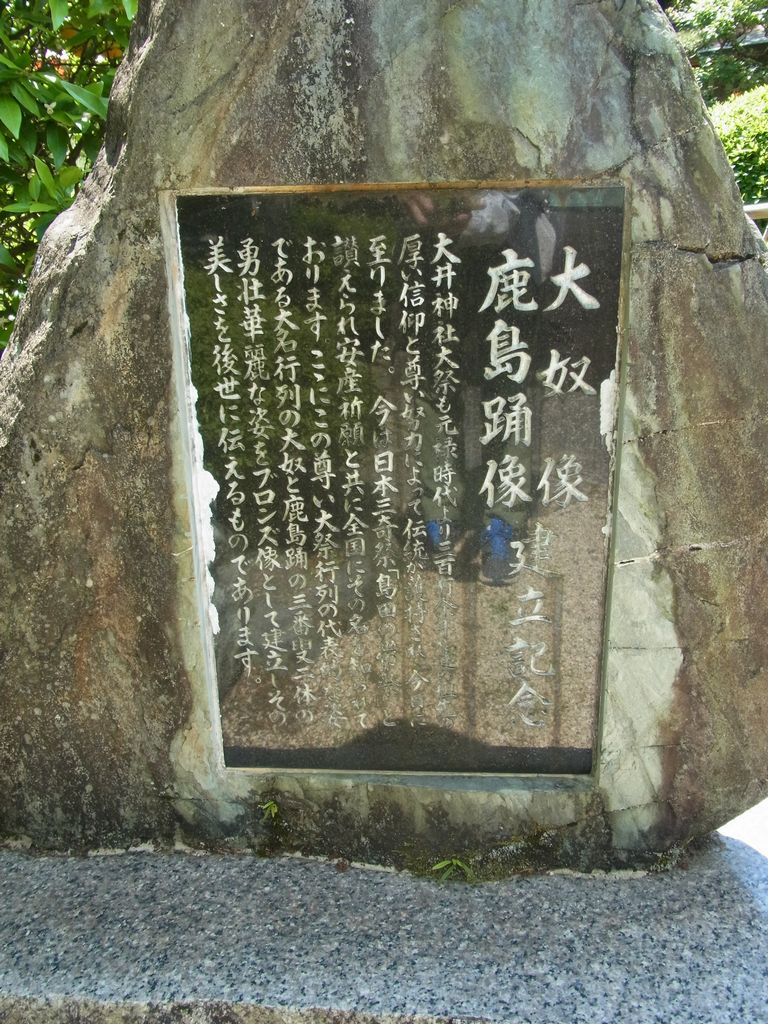 大奴像
鹿島踊像 建立記念
大井神社大祭も元禄時代より三百
厚い信仰と尊い努力によって伝統が維持され今日に
至りました。今は日本三奇祭「島田
讃えられ安産祈願と共に全国にその名
おります。ここにこの尊い大祭行列の代表
である大名行列の大奴と鹿島踊の三番叟二体の
勇壮華麗な姿をブロンズ像として建立しその
美しさを後世に伝えるものであります。